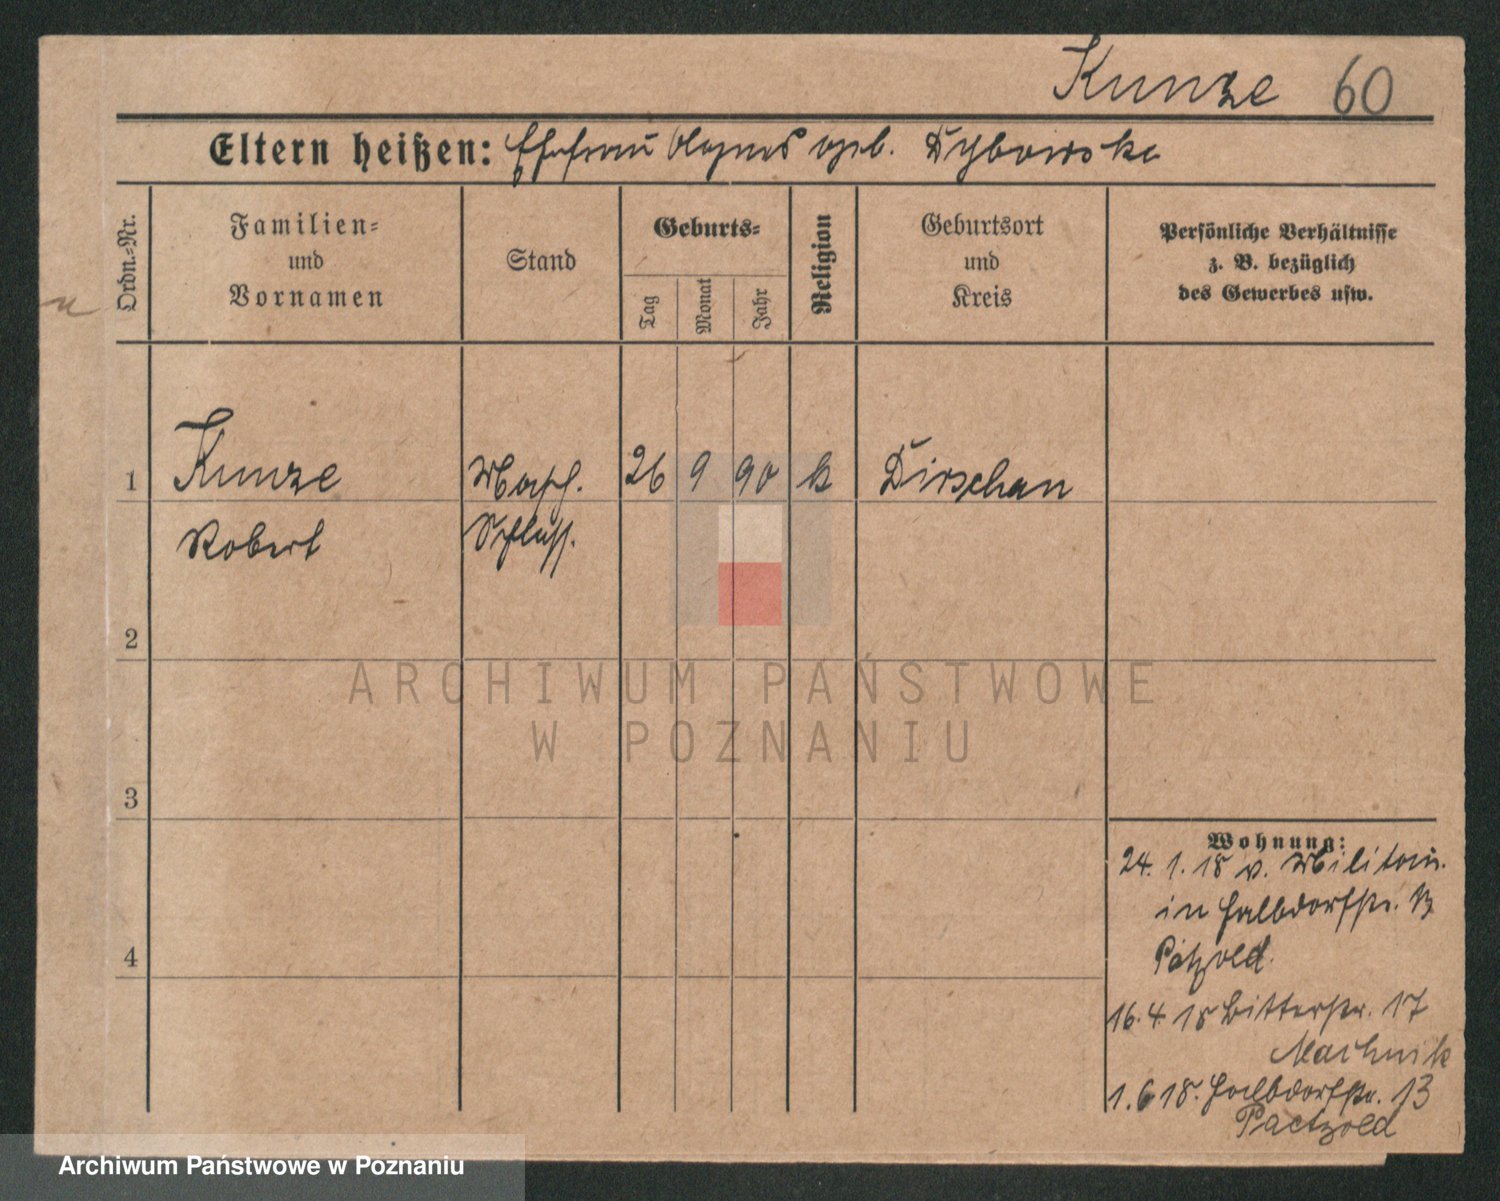 Kunze 60
Eltern heißen: Ehefrau Agnes geb. Dybowska
Ordn.=Nr.
Familien=
und
Vornamen
Stand
Geburts=
Tag
Monat
Jahr
Religion
Geburtsort
und
Kreis
Persönliche Verhältnisse
z. B. bezüglich
des Gewerbes usw.
1 Kunze Masch. 26 9 90 k Dirschau
Robert Schloss.
2
ARCHIWUM PAŃSTWOWE
W POZNANIU
3
Wohnung:
24. 1. 18 v. Militär.
in Halbdorfstr. 13
Pätzold.
4
16. 4. 18 Bitterstr. 17
Machnik
1. 6 18. Halbdorfstr. 13
Paetzold
Archiwum Państwowe w Poznaniu